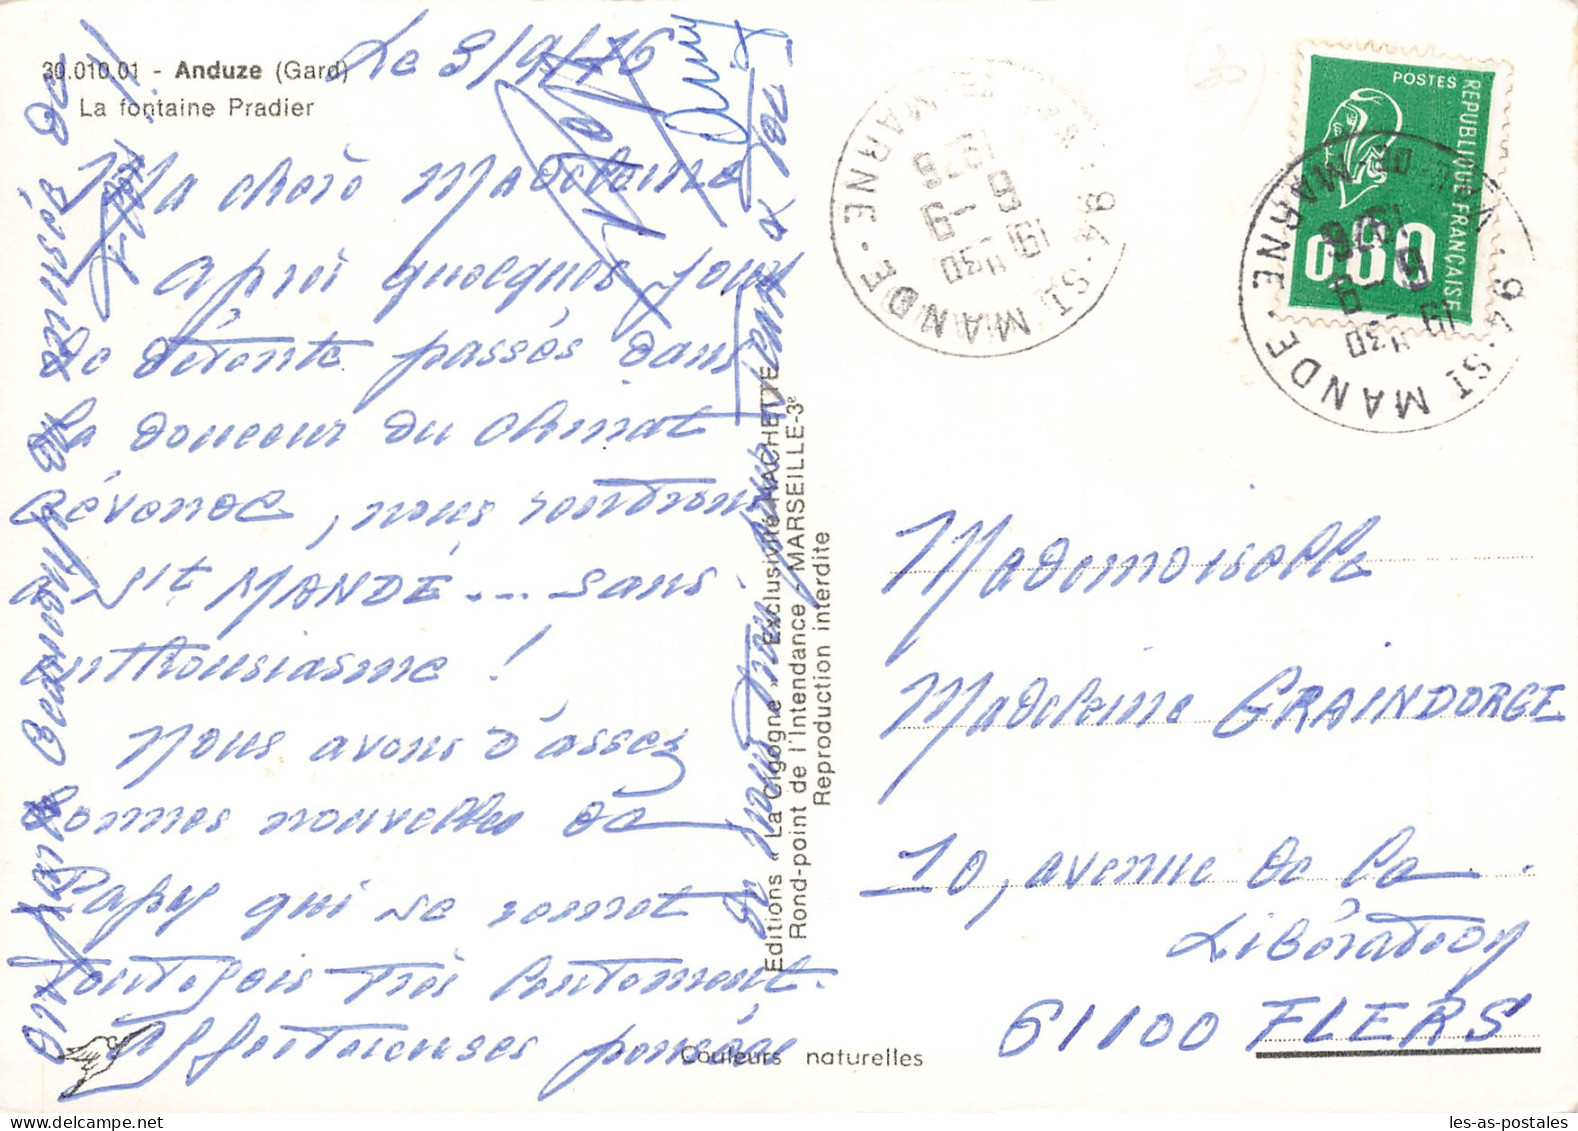 30.010.01 - Anduze (Gard)
La fontaine Pradier
Le 8/9/76
Ma chère Madeleine
Après quelques jours
de détente passés dans
la douceur du climat
cévenol, nous rentrons
à St MANDÉ... sans
enthousiasme !
Nous avons d'assez
bonnes nouvelles de
Papy qui se remet
toutefois très lentement.
Affectueuses pensées
Editions « La Cigogne » Exclusivité HACHETTE
Rond-point de l'Intendance - MARSEILLE-3e
Reproduction interdite
Couleurs naturelles
POSTES
REPUBLIQUE FRANCAISE
0,80
94 - ST MANDE - VAL-DE-MARNE
19 H30
9 - 9
1976
94 - ST MANDE - VAL-DE-MARNE
19 H30
9 - 9
1976
Mademoiselle
Madeleine GRAINDORGE
10, avenue de la
Libération
61100 FLERS
les-as-postales